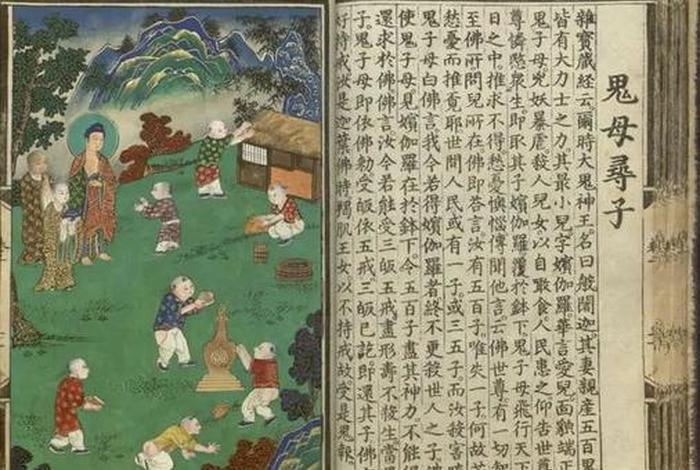 鬼母尋子
雜寶藏経云.爾時大鬼神王.名曰般闍迦.其妻親產五百
皆有大力士之力.其最小兒字嬪伽羅.華言愛兒.面貌端
鬼子母兇妖暴虐.殺人兒女以自噉食人民患之仰告世
尊憐愍衆生即取其子嬪伽羅覆於鉢下.鬼子母飛行天下
日之中.推求不得愁憂懊惱傳聞他言云佛世尊.有一切
至佛所問兒所在佛即答言.汝有五百子.唯失一子.何故
愁憂而推覔耶世間人民或有一子.或三五子而汝殺害
鬼子母白佛言我今若得嬪伽羅者終不更殺世人之子
使鬼子母見嬪伽羅在於鉢下.令五百子盡其神力不能得
還求於佛佛言.汝今若能受三皈五戒盡形壽不殺生.當
子鬼子母即依佛勅受皈依五戒三皈已訖即還其子佛
好持戒.汝是迦葉佛時羯肌王女以不持戒故.受是鬼報